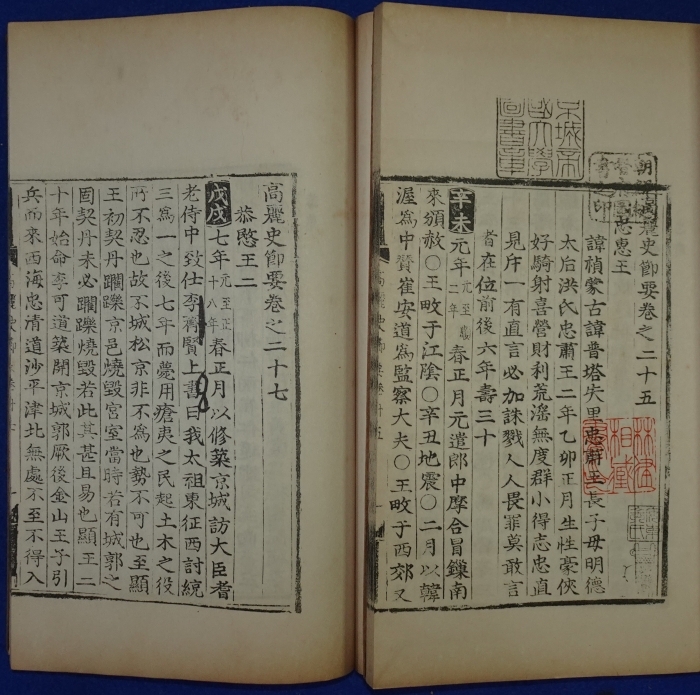 京城帝
國大學
圖書章
高麗史節要卷之二十五
忠惠王
諱禎蒙古諱普塔失里忠肅王長子母明德
太后洪氏忠肅王二年乙卯正月生性豪俠
好騎射喜營財利荒淫無度群小得志忠直
見斥一有直言必加誅戮人人畏罪莫敢言
者在位前後六年壽三十
辛未元年元至順二年春正月元遣郎中摩合冒鎌南
來頒赦○王畋于江陰○辛丑地震○二月以韓
渥爲中贊崔安道爲監察大夫○王畋于西郊又
高麗史節要卷之二十七
恭愍王二
戊戌七年元至正十八年春正月以修築京城訪大臣耆
老侍中致仕李齊賢上書曰我太祖東征西討統
三爲一之後七年而薨用瘡夷之民起土木之役
所不忍也故不城松京非不爲也勢不可也至顯
王初契丹躙躒京邑燒毀宮室當時若有城郭之
固契丹未必躙躒燒毀若此其甚且易也顯王二
十年始命李可道築開京城郭厥後金山王子引
兵而來西海忠淸道沙平津北無處不至不得入